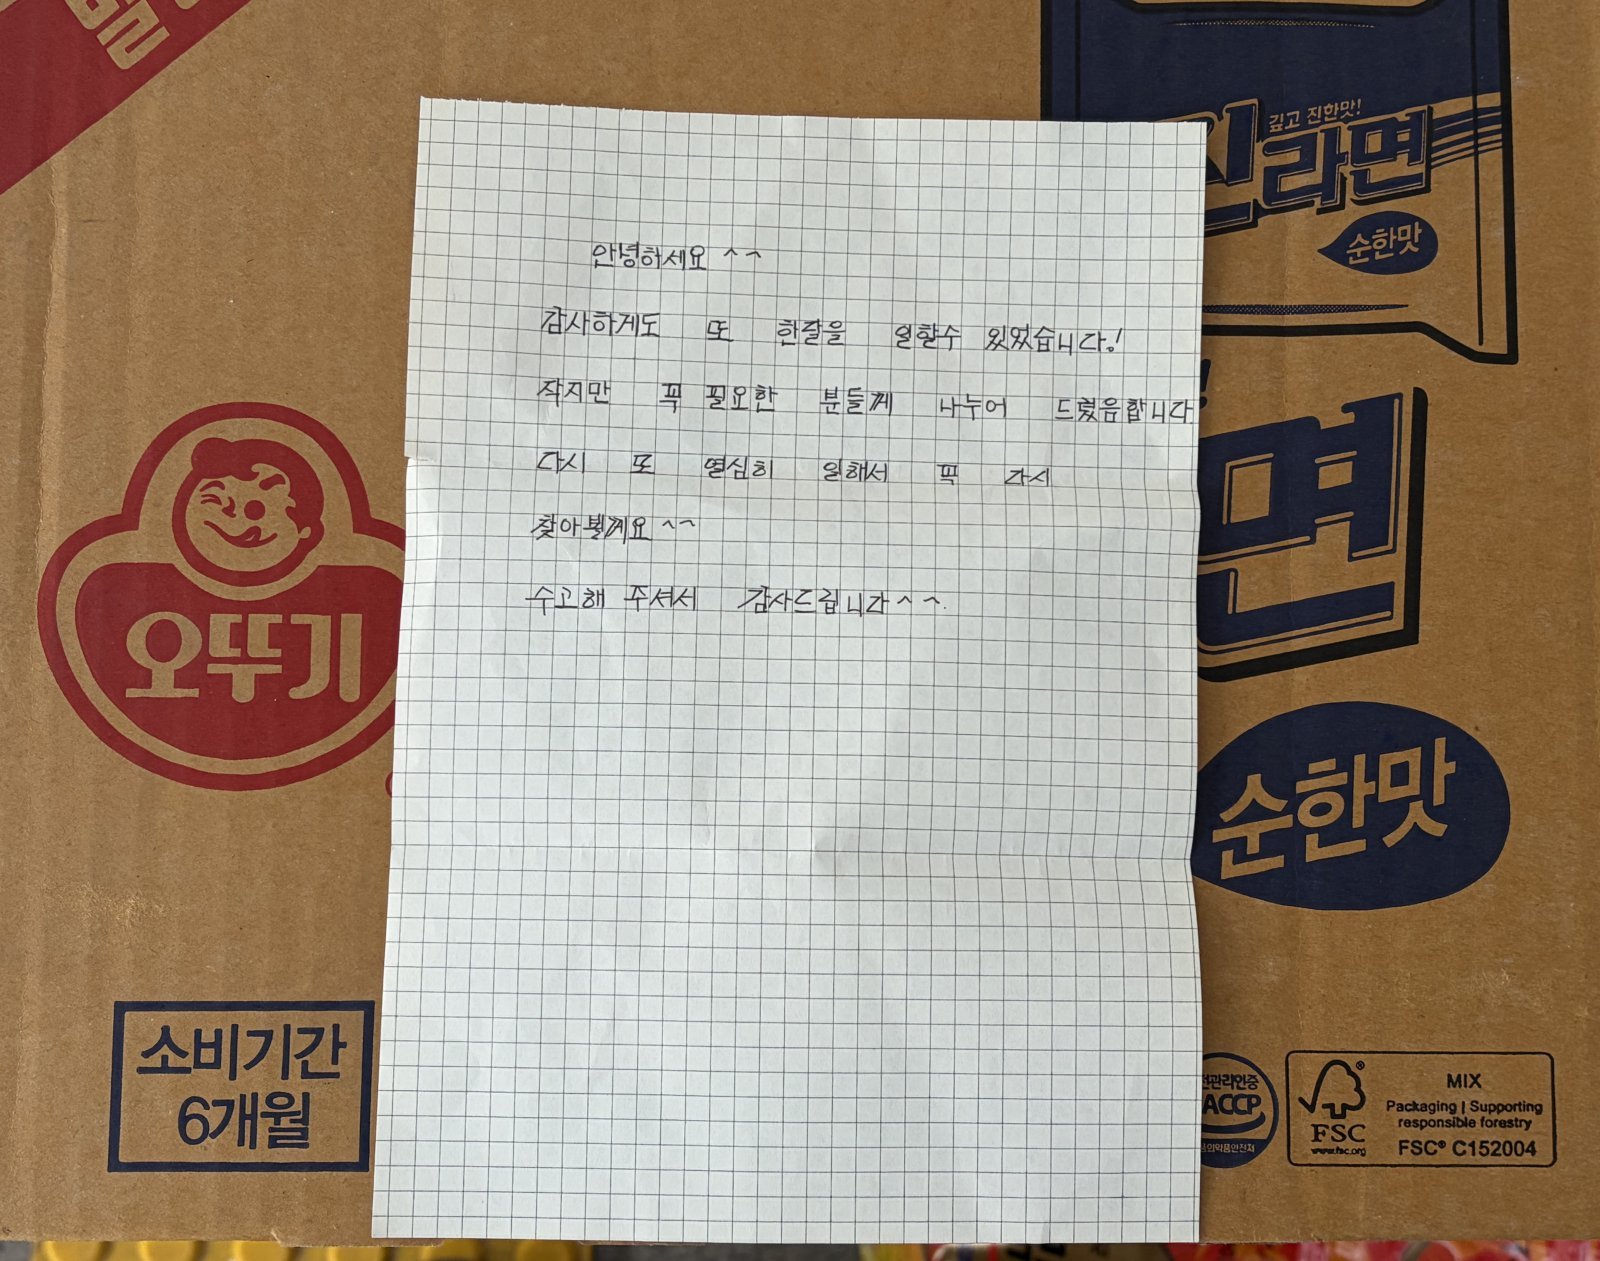 안녕하세요 ^^
감사하게도 또 한달을 일할수 있었습니다!
작지만 꼭 필요한 분들께 나누어 드렸음합니다
다시 또 열심히 일해서 꼭 다시
찾아뵐께요 ^^
수고해 주셔서 감사드립니다 ^^.
깊고 진한맛!
진라면
순한맛
면
순한맛
오뚜기
소비기간
6개월
전관리인증
ACCP
MIX
Packaging | Supporting
responsible forestry
FSC® C152004
FSC
www.fsc.org